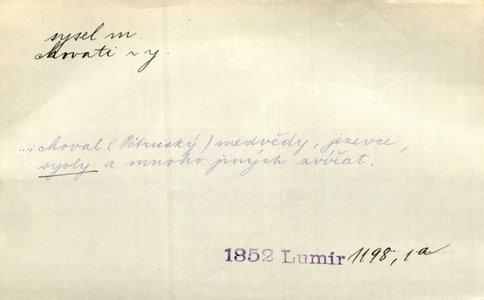 sysel m.
chovati ~ y.
...; choval (Pětruský) medvědy, jezevce,
sysly a mnoho jiných zvířat.
1852 Lumír 1198, 1a